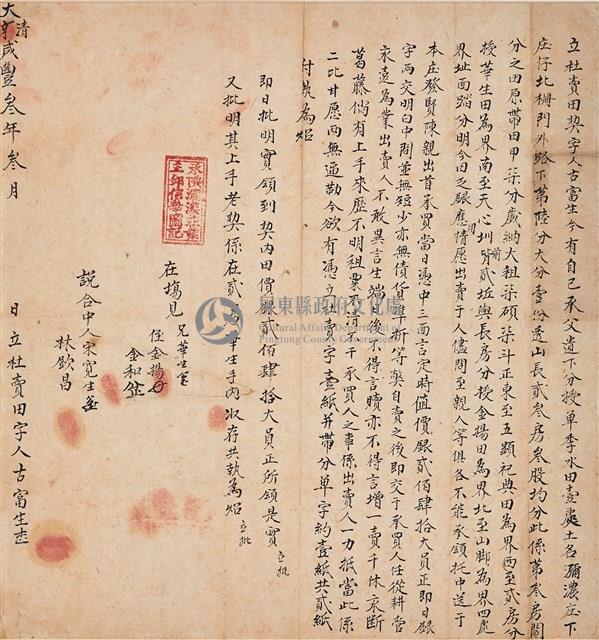 立杜賣田契字人古富生今有自己承父遺下分授單季水田壹處土名瀰濃庄下
庄仔北柵門外路下第陸分大分壹份透山長貳叁房叁股均分此係第叁房鬮
分之田原帶田甲柒分歲納大租柒碩柒斗正東至五顯祀典田為界西至貳房分
授華生田為界南至天心圳背貳坵與長房分授金揚田為界北至山腳為界四處
界址面踏分明今因乏銀應用情愿出賣于人儘問至親人等俱各不能承領托中送于
本庄發賢陳親出首承買當日憑中三面言定時值價銀貳佰肆拾大員正即日銀
字兩交明白中間並無短少亦無債貨準折等獘自賣之後即交于承買人任從耕管
永遠為業出賣人不敢異言生端日後不得言贖亦不得言增一賣千休永斷
葛藤倘有上手來歷不明租粟不清不干承買人之事係出賣人一力抵當此係
二比甘愿兩無逼勒今欲有憑立杜賣字壹紙并帶分單字約壹紙共貳紙
付執為炤
即日批明實領到契內田價銀貳佰肆拾大員正所領是實 立批
又批明其上手老契係在貳房華生手內收存共執為炤 立批
在場見 兄華生
侄金揚
金和
說合中人宋寬生
林欽昌
大清咸豐叁年叁月 日立杜賣田字人古富生
屏東縣政府文化處
Cultural Affairs Department of
Pingtung County Government